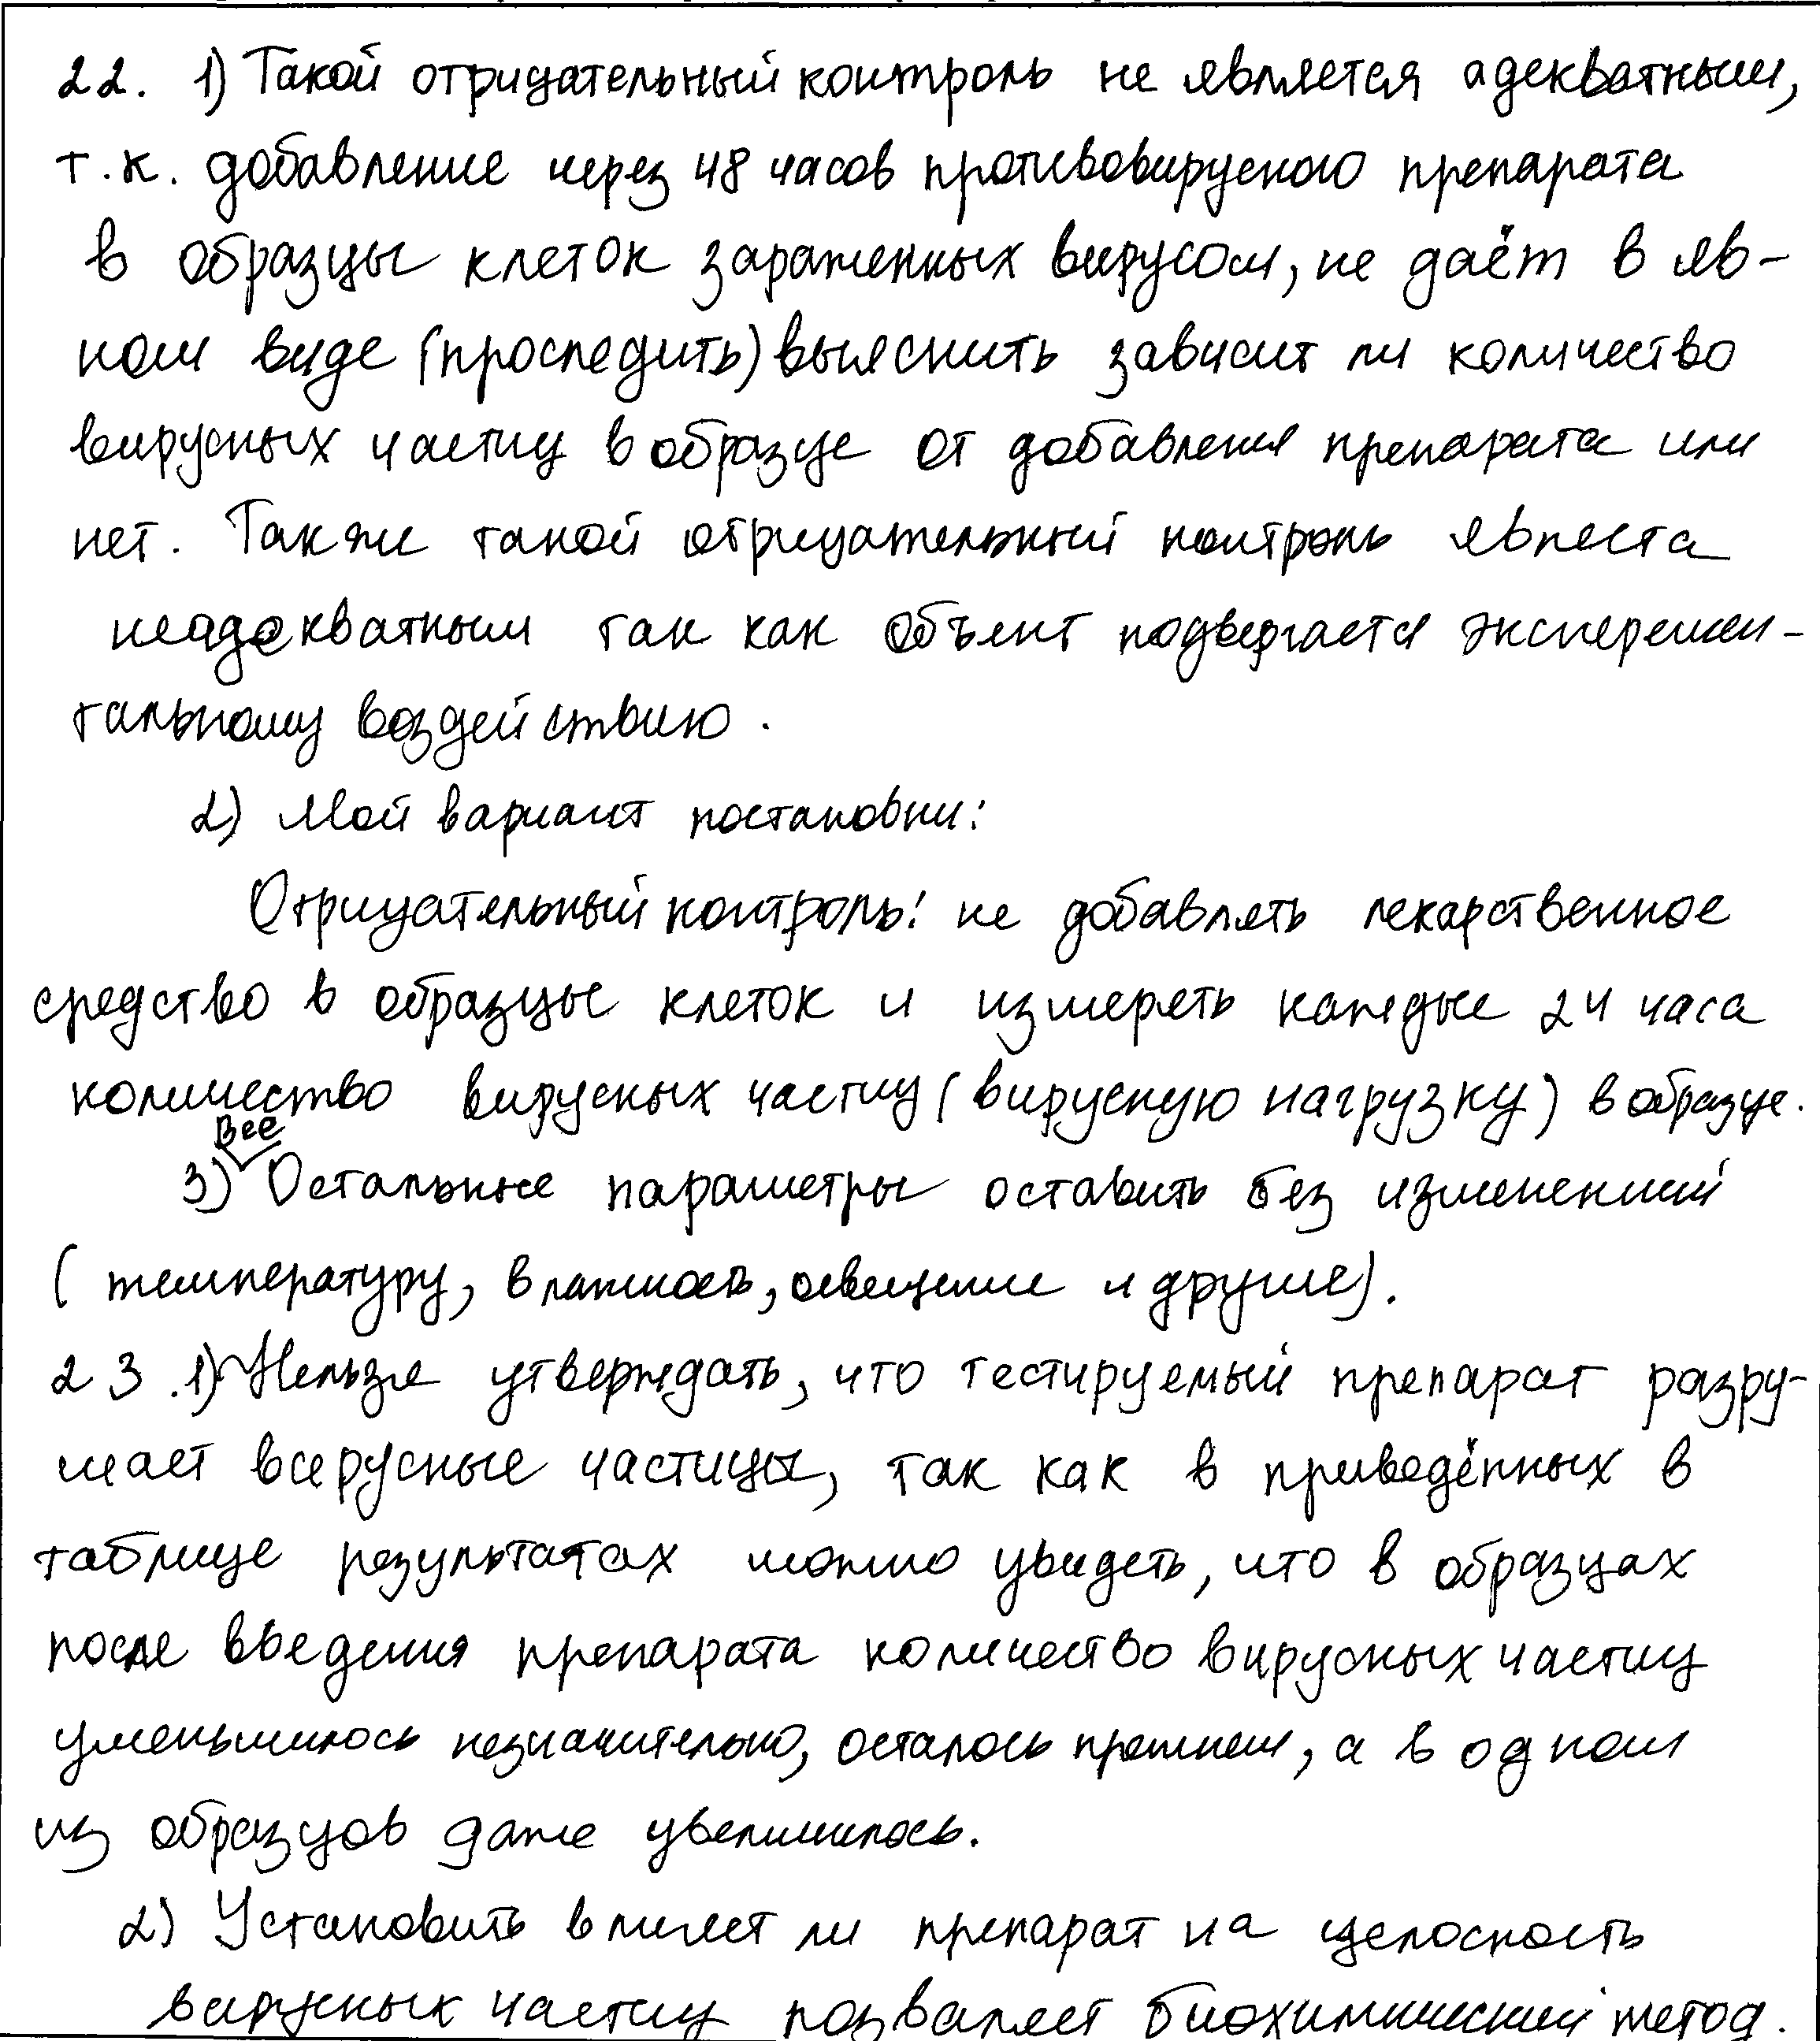 22. 1) Такой отрицательный контроль не является адекватным,
т.к. добавление через 48 часов противовирусного препарата
в образцы клеток зараженных вирусом, не даёт в яв-
ном виде (проследить) выяснить зависит ли количество
вирусных частиц в образце от добавления препарата или
нет. Также такой отрицательный контроль явлеста
неадекватным так как объект подвергается эксперемен-
тальному воздействию.
2) Мой вариант постановки:
Отрицательный контроль: не добавлять лекарственное
средство в образцы клеток и измерять каждые 24 часа
количество вирусных частиц (вирусную нагрузку) в образце.
Все
3) Остальные параметры оставить без изменений
(температуру, влажность, освещение и другие).
23. 1) Нельзя утверждать, что тестируемый препарат разру-
шает вирусные частицы, так как в приведённых в
таблице результатах можно увидеть, что в образцах
после введения препарата количество вирусных частиц
уменьшилось незначительно, осталось прежнем, а в одном
из образцов даже увеличилось.
2) Установить влияет ли препарат на целосность
вирусных частиц позваляет биохимический метод.